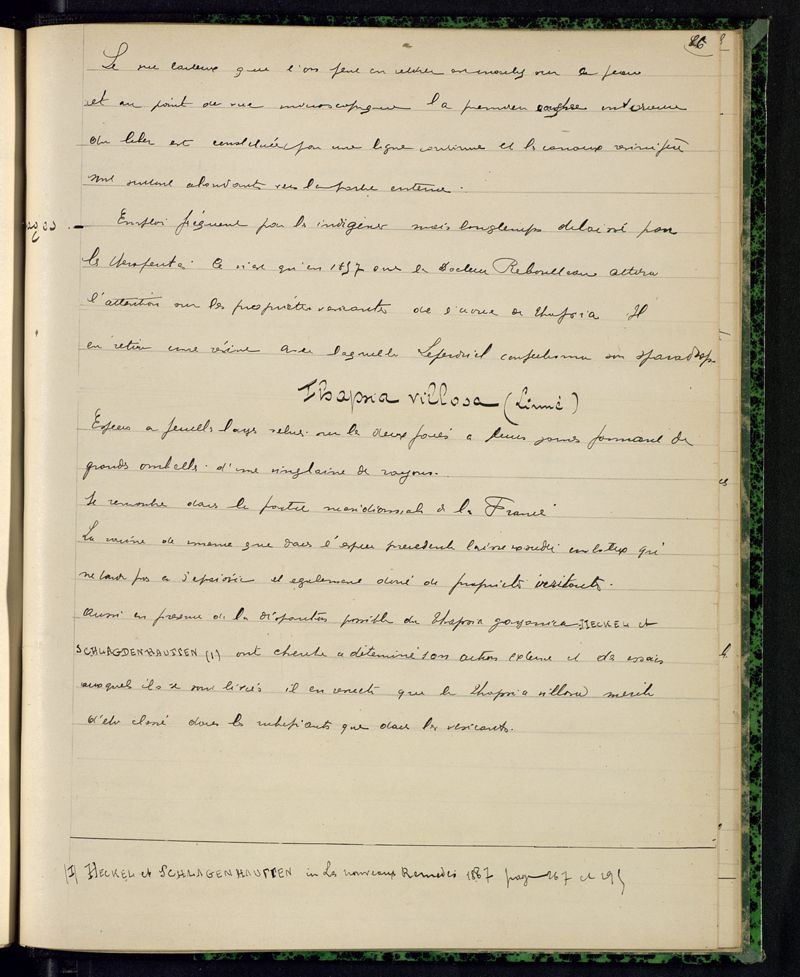 26
Le suc laiteux que l'on peut en retirer en sur la peau
et au point de vue microscopique la première couche intérieure
du liber est constituée par une ligne continue et les canaux résinifère
sont surtout abondants vers la partie externe.
Emploi fréquent par les indigènes mais longtemps délaissé par
les therapeutes Ce n'est qu'en 1857 que le Docteur Reboulleau attira
l'attention sur les propriétés vesicantes de l'écorce de Thapsia. Il
en retira une résine avec laquelle Leperdriel confectionna son sparadrap
Thapsia villosa (Linné)
Espèce a feuilles larges velues sur les deux faces a fleurs jaunes formant de
grands ombelles d'une vingtaine de rayons.
Se rencontre dans la partie meridionale de la France
La racine de meme que dans l'espece precedente laisse exuder un latex qui
ne tarde pas a s'epaissir et egalement doué de propriétés irritantes.
Aussi en presence de la disparition possible du Thapsia garganica HECKEL et
SCHLAGDENHAUFFEN (1) ont cherché a déterminé son action externe et des essais
auxquels ils se sont livrés il en resulte que le Thapsia villosa merite
d'etre classé dans les rubefiants que dans les vesicants.
(1) HECKEL et SCHLAGENHAUFFEN in Les nouveaux Remedes 1887 page 267 et 295